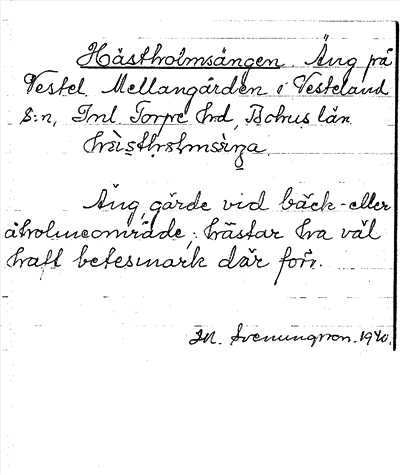 Hästholmsängen. Äng på
Vestel Mellangården i Vesteland
s:n, Inl. Torpe hd, Bohus län
Äng, gärde vid bäck- eller
åholmeområde; hästar ha väl
haft betesmark där förr.
M. Svenungsson. 1940.